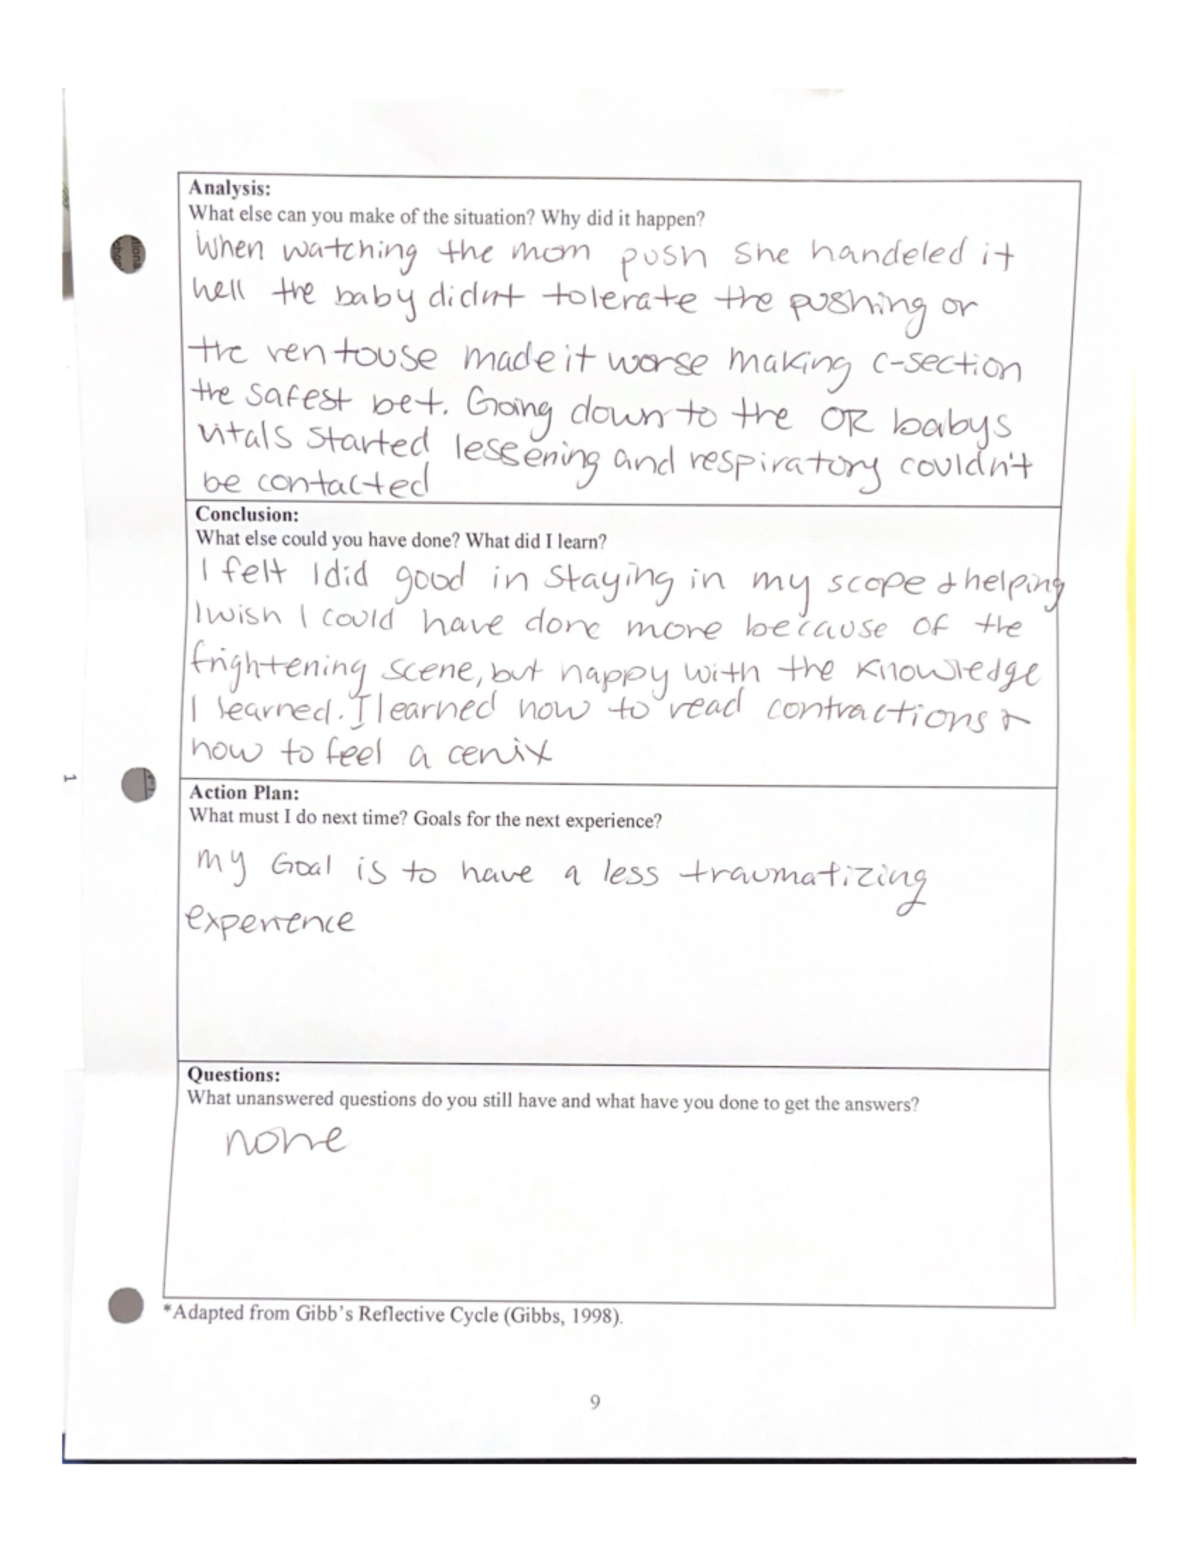 Analysis:
What else can you make of the situation? Why did it happen?
When watching the mom push she handeled it
well the baby didnt tolerate the pushing or
the ventouse made it worse making c-section
the safest bet. Going down to the OR babys
vitals started lessening and respiratory couldn't
be contacted
Conclusion:
What else could you have done? What did I learn?
I felt I did good in staying in my scope & helping
I wish I could have done more because of the
frightening scene, but happy with the knowledge
I learned. I learned how to read contractions &
how to feel a cervix
Action Plan:
What must I do next time? Goals for the next experience?
my Goal is to have a less traumatizing
experience
1
Questions:
What unanswered questions do you still have and what have you done to get the answers?
none
*Adapted from Gibb's Reflective Cycle (Gibbs, 1998).
9